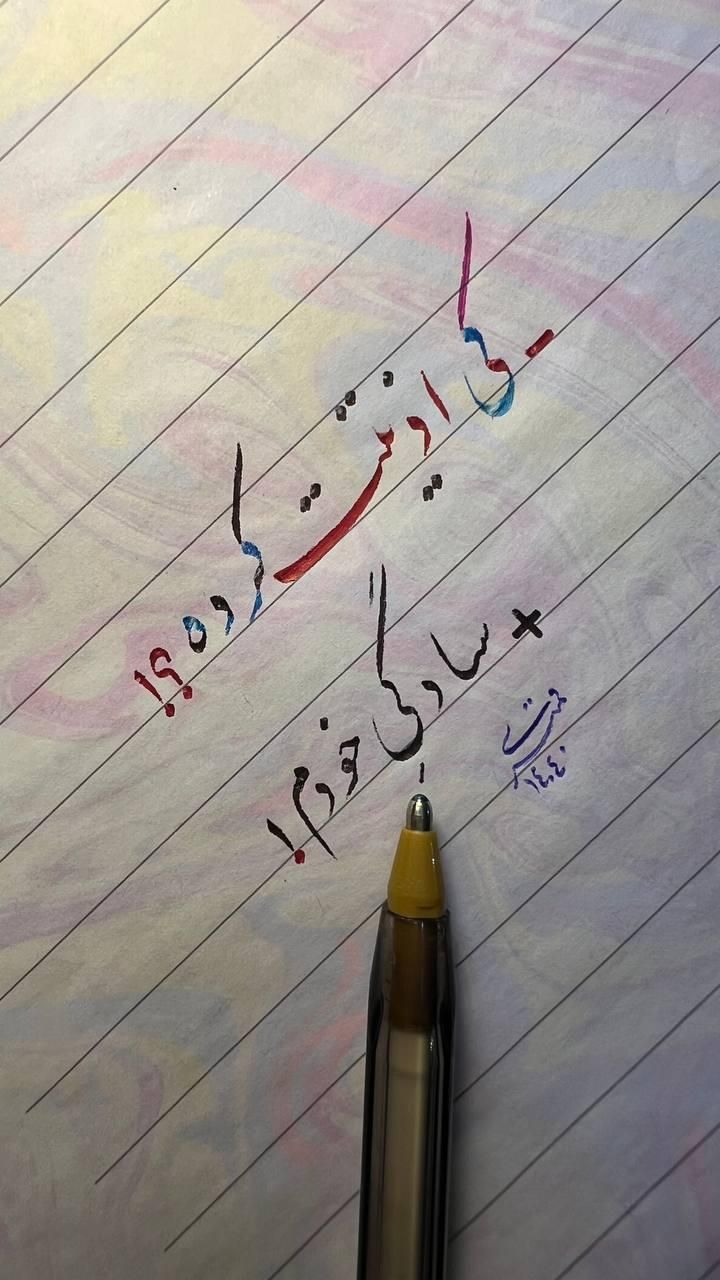 - کی اذیتت کرده؟!
× سادگی خودم!
۱۴۰۴